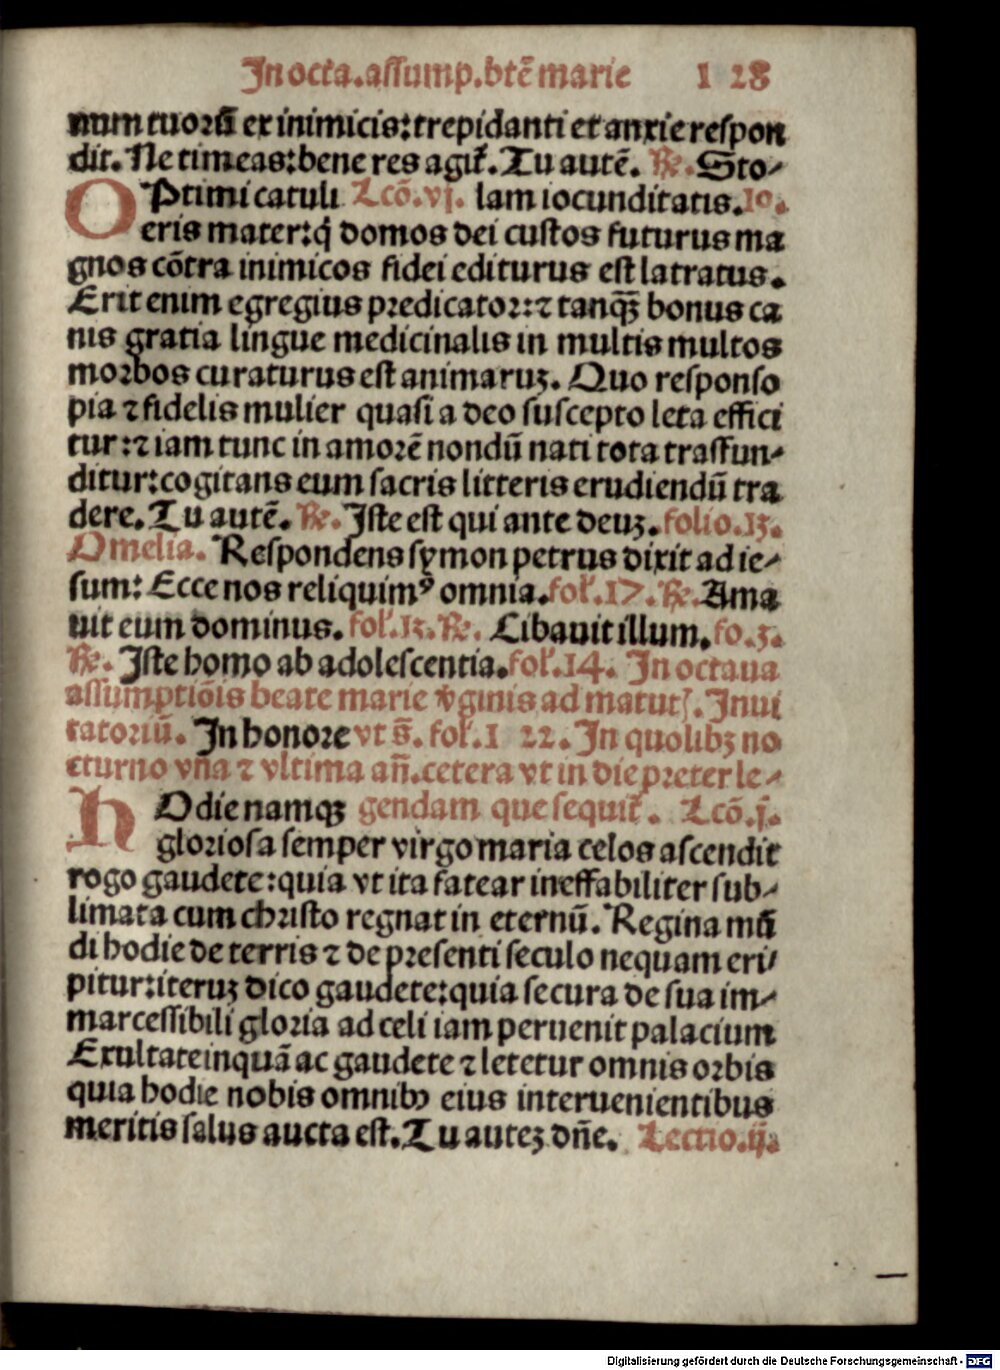 In octa.assump.btē marie 1 28
num tuorū ex inimicis:trepidanti et anxie respon
dit. Ne timeas:bene res agit̄. Tu autē. ℟. Sto-
OPtimi catuli Lcō.vj. lam iocunditatis.10.
eris mater:q̄ domos dei custos futurus ma
gnos cōtra inimicos fidei editurus est latratus.
Erit enim egregius predicator:⁊ tanqȝ bonus ca
nis gratia lingue medicinalis in multis multos
morbos curaturus est animaruȝ. Quo responso
pia ⁊ fidelis mulier quasi a deo suscepto leta effici
tur:⁊ iam tunc in amorē nondū nati tota trassun-
ditur:cogitans eum sacris litteris erudiendū tra
dere. Tu autē. ℟. Iste est qui ante deuȝ. folio.13.
Omelia. Respondens symon petrus dixit ad ie-
sum: Ecce nos reliquimꝰ omnia. fol̄.17. ℟. Ama
uit eum dominus. fol̄.13. ℟. Cibauit illum. fo.3.
℟. Iste homo ab adolescentia. fol̄.14. In octaua
assumptiōis beate marie v̄ginis ad matut̄. Inui
tatoriū. In honore vt s̄. fol̄.1 22. In quolibȝ no
cturno vna ⁊ vltima an̄. cetera vt in die preter le-
HOdie namqȝ gendam que sequit̄. Lcō.j.
gloriosa semper virgo maria celos ascendit
rogo gaudete:quia vt ita fatear ineffabiliter sub-
limata cum christo regnat in eternū. Regina mū
di hodie de terris ⁊ de presenti seculo nequam eri-
pitur:iteruȝ dico gaudete:quia secura de sua im-
marcessibili gloria ad celi iam peruenit palacium
Exultate inquā ac gaudete ⁊ letetur omnis orbis
quia hodie nobis omnibꝰ eius interuenientibus
meritis salus aucta est. Tu auteȝ dn̄e. Lectio.ij.
Digitalisierung gefördert durch die Deutsche Forschungsgemeinschaft - DFG